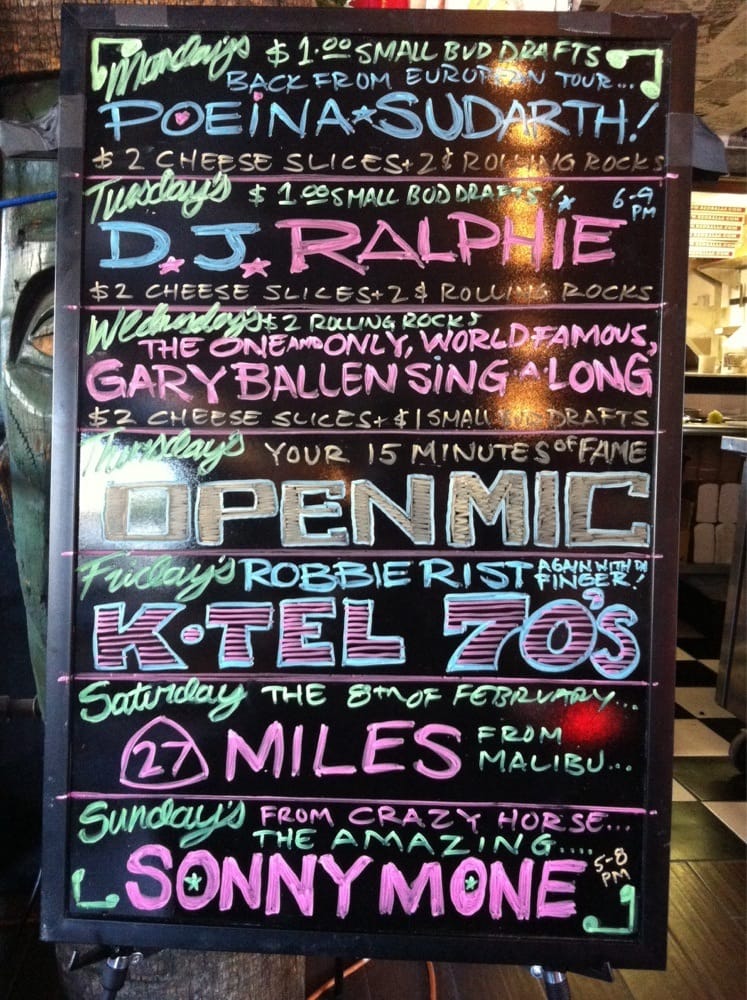 Monday's $1.00 SMALL BUD DRAFTS
BACK FROM EUROPEAN TOUR...
POEINA★SUDARTH!
$2 CHEESE SLICES + 2$ ROLLING ROCKS
Tuesday's $1.00 SMALL BUD DRAFTS! 6-9 PM
D.J. RALPHIE
$2 CHEESE SLICES + 2$ ROLLING ROCKS
Wednesday's $2 ROLLING ROCKS
THE ONE AND ONLY, WORLD FAMOUS,
GARY BALLEN SING·A·LONG
$2 CHEESE SLICES + $1 SMALL BUD DRAFTS
Thursday's YOUR 15 MINUTES of FAME
OPEN MIC
Friday's ROBBIE RIST AGAIN WITH DA FINGER!
K·TEL 70's
Saturday THE 8TH OF FEBRUARY...
27 MILES FROM MALIBU...
Sunday's FROM CRAZY HORSE...
THE AMAZING....
SONNY MONE 5-8 PM